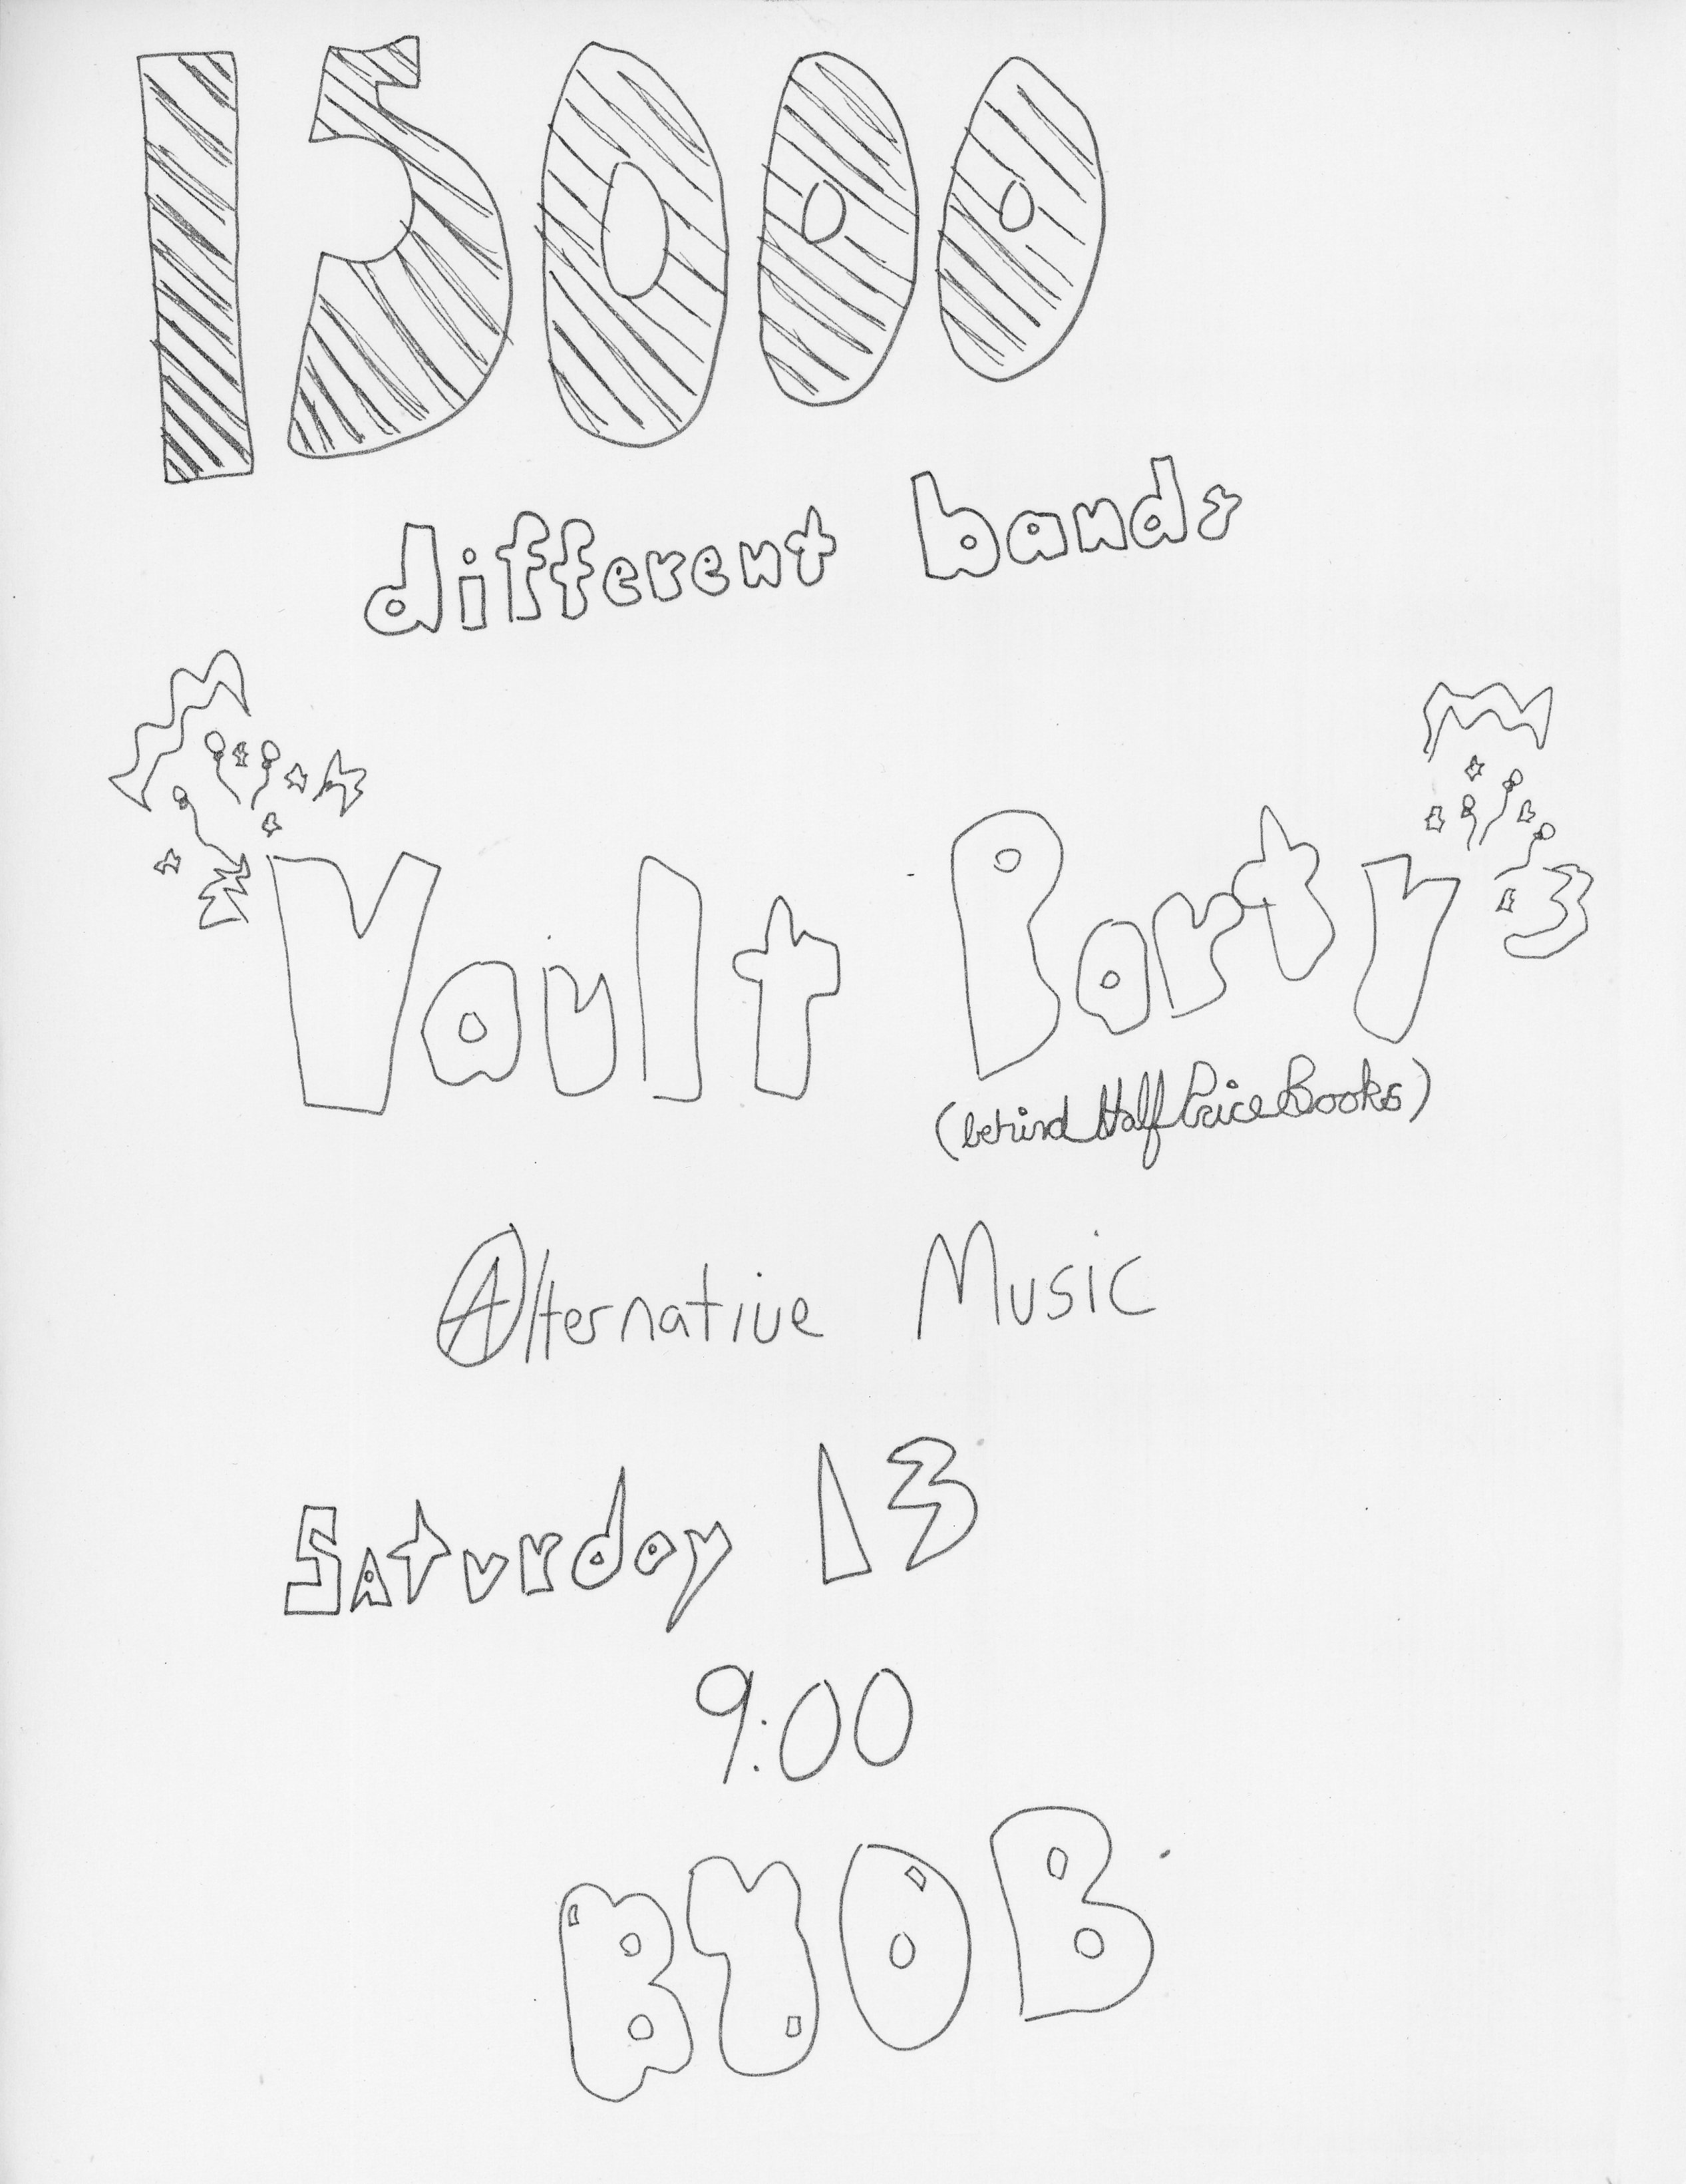 15000
different bands
Vault Party
(behind Half Price Books)
Alternative Music
Saturday 13
9:00
BYOB